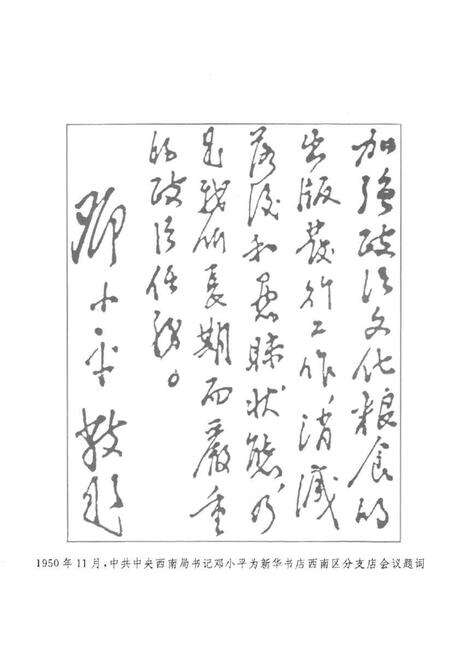 加强政治文化粮食的
出版发行工作，消灭
落后和愚昧状态，乃
是我们长期而严重
的政治任务。
邓小平敬题
1950年11月，中共中央西南局书记邓小平为新华书店西南区分支店会议题词